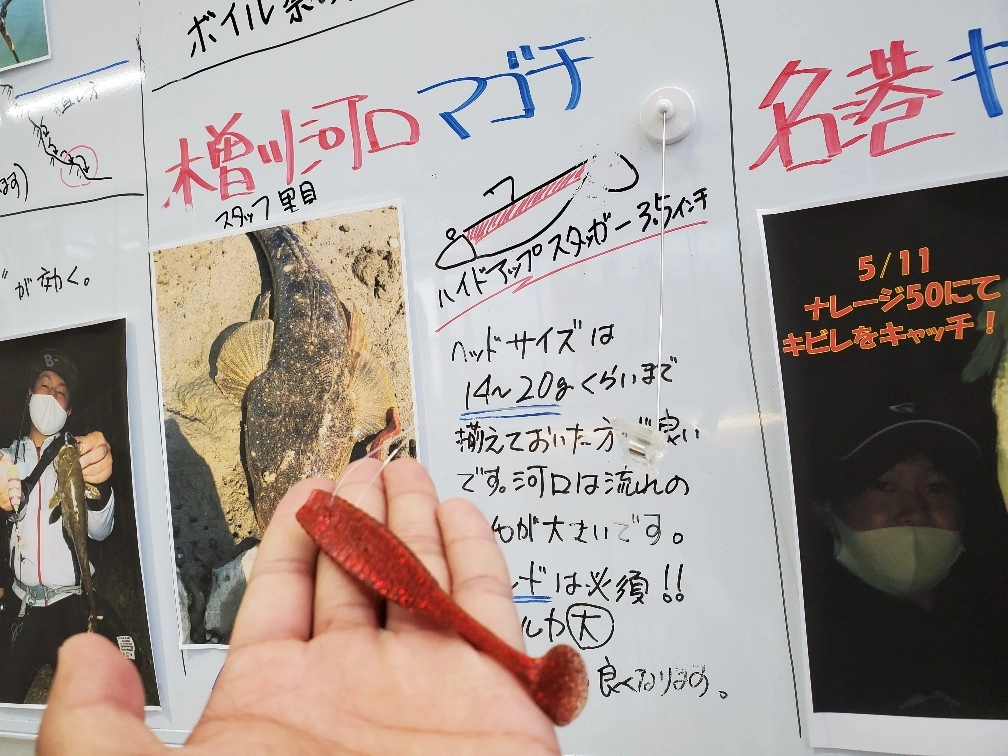 ボイル
ます)
が効く。
B
樌川河口 マゴチ
スタッフ 里目
ハイドアップスタッガー3.5インチ
ヘッドサイズは
14~20gくらいまで
揃えておいた方が良い
です。河口は流れの
が大きいです。
ドは必須!!
ルカ大
良くなります。
名港 キ
5/11
ナレージ50にて
キビレをキャッチ!